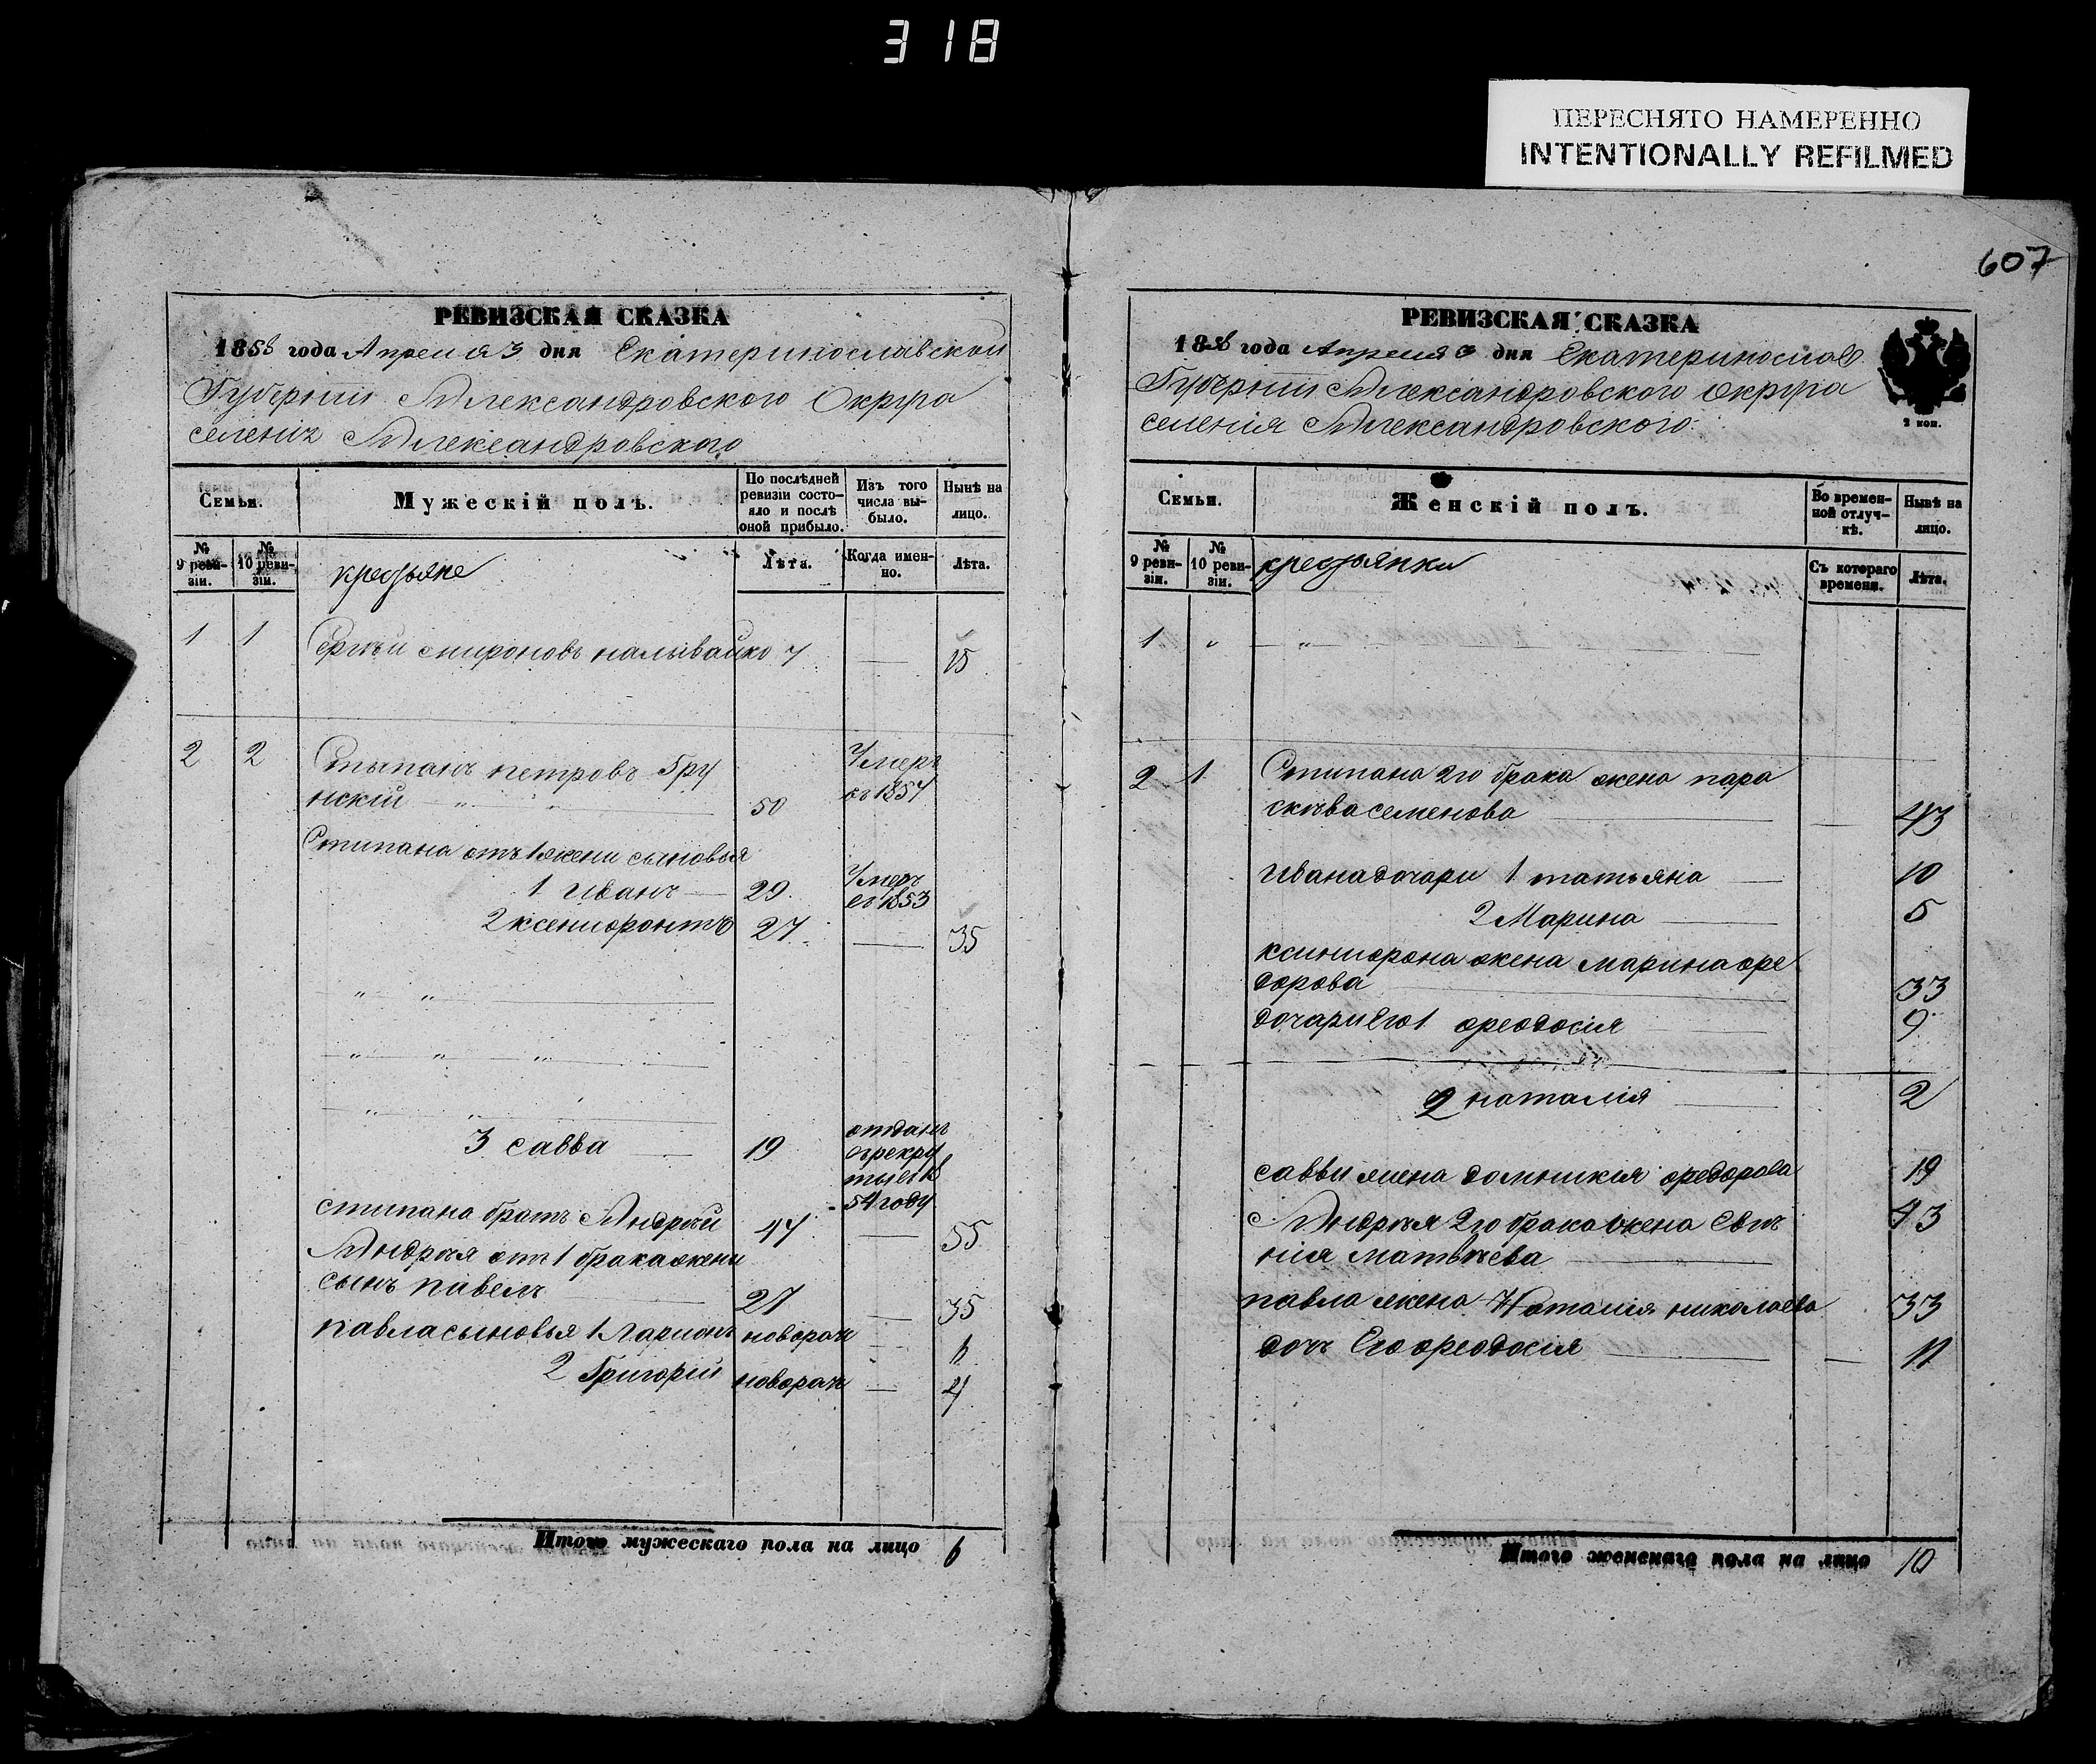 318
ПЕРЕСНЯТО НАМЕРЕННО
INTENTIONALLY REFILMED
РЕВИЗСКАЯ СКАЗКА
1858 года Апреля 3 дня Екатеринославской
Губерніи Александровского Округа
селенія Александровского
Семьи.
Мужескій полъ.
По послѣдней
ревизіи состо-
яло и послѣ
оной прибыло.
Изъ того
числа вы-
было.
Нынѣ на
лицо.
№
9 реви-
зіи.
№
10 реви-
зіи.
крестьяне
Лѣта.
Когда имен-
но.
Лѣта.
1 1 Сергѣй мироновъ наливайко 7 — 15
2 2 Стыпанъ петровъ Гру
нскій 50
Умеръ
въ 1857
Стипана отъ 1 жени сыновья
1 иванъ — 29
Умеръ
въ 1853
2 ксенофонтъ 27 — 35
3 савва — 19
отданъ
врекру
ты в 18
54 году
стипана братъ Андрѣй 47 — 55
Андрѣя от 1 брака жени
сынъ павелъ 27 — 35
павла сыновья 1 Ларионъ новорож — 6
2 Григорій новорож — 4
Итого мужескаго пола на лицо 6
607
РЕВИЗСКАЯ СКАЗКА
1858 года Апреля 3 дня Екатеринослав
Губерніи Александровского округа
селенія Александровского
2 коп.
Семьи.
Женскій полъ.
Во времен-
ной отлуч-
кѣ.
Нынѣ на
лицо.
№
9 реви-
зіи.
№
10 реви-
зіи.
крестьянки
Съ котораго
времени.
Лѣта.
1 " — " —
2 1 Стипана 2го брака жена пара
скѣва семенова — 43
ивана дочари 1 татьяна — 10
2 Марина — 5
ксинофона жена марина фе
дорова 33
дочари Его 1 феодосія — 9
2 наталія — 2
саввы жена домникія федорова 19
Андрѣя 2го брака жена Евге
нія матвѣева — 43
павла жена Наталія николаева 33
дочь Его феодосія — 11
Итого женскаго пола на лицо 10